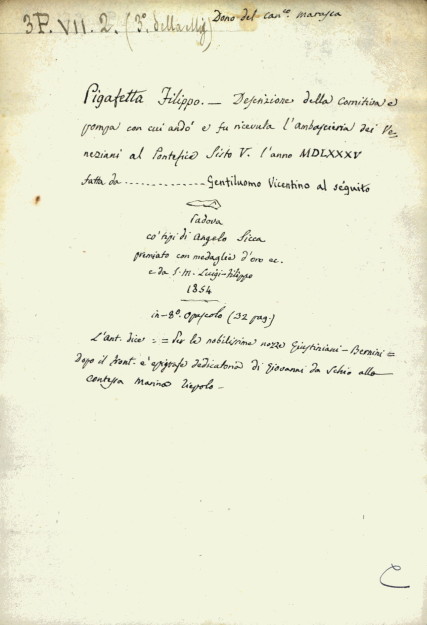 3P. VII. 2. (3º della Mis)
Dono del can.co marasca
Pigafetta Filippo. — Descrizione della Comitiva e
pompa con cui andò e fu ricevuta l'ambascieria dei Ve-
neziani al Pontefice Sisto V. l'anno MDLXXXV
fatta da .............. Gentiluomo Vicentino al séguito
Padova
co' tipi di Angelo Sicca
premiato con medaglia d'oro ec.
e da S. M. Luigi-Filippo
1854
in-8º. opuscolo (32 pag.)
L'Ant. dice := Per le nobilissime nozze Giustiniani-Bernini =
dopo il front. è epigrafe dedicatoria di Giovanni da Schio alla
contessa Marina Tiepolo -
C